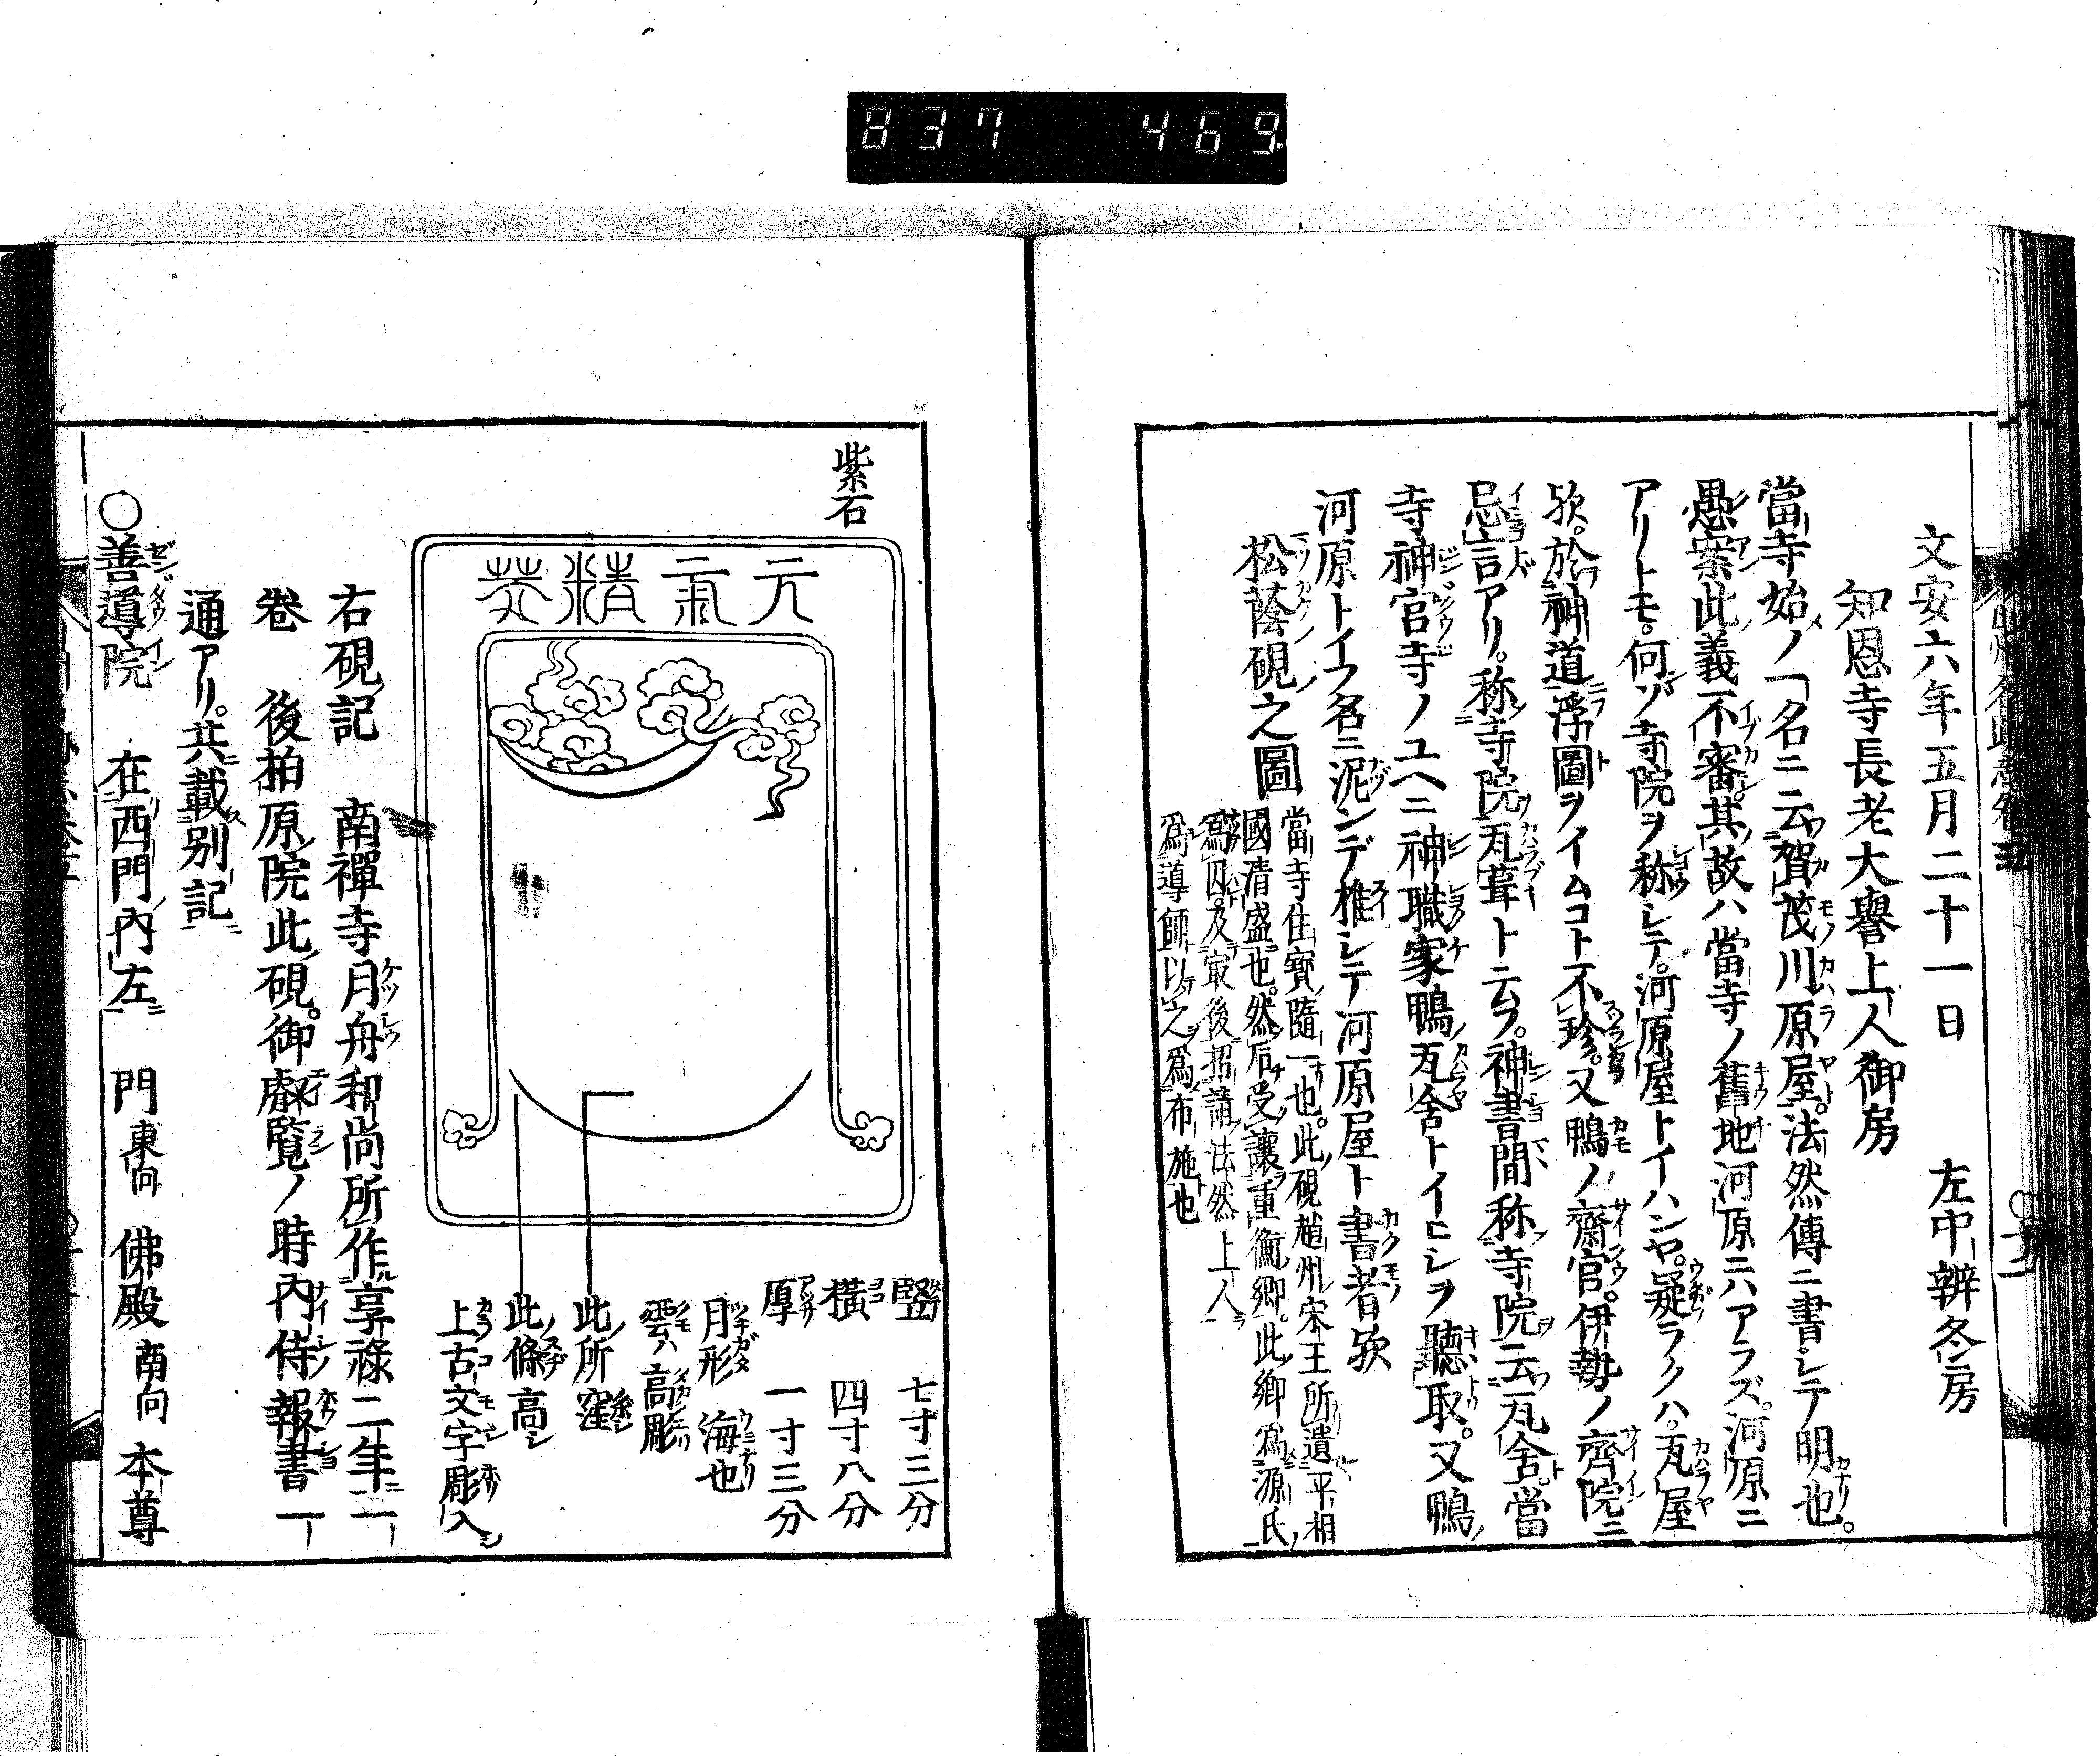 837 469
文安六年五月二十一日　左中辨冬房
知恩寺長老大譽上人御房
當寺始ノ名ニ云賀茂川原屋法然傳ニ書シテ明也。
愚案此義不審其故ハ當寺ノ舊地河原ニハアラズ。河原ニ
アリトモ。何ゾ寺院ヲ称シテ。河原屋トイハンヤ。疑ラクハ。瓦屋
歟。於神道浮圖ヲイムコト不珍。又鴨ノ齋宮。伊勢ノ齊院ニ
忌言アリ。称寺院瓦葺ト云フ。神書間称寺院云瓦舍。當
寺神宮寺ノユヘニ神職家鴨瓦舍トイヒシヲ聽取。又鴨
河原トイフ名ニ泥ンデ推シテ河原屋ト書者歟
松蔭硯之圖
當寺住寳隨一也。此硯趙州宋王所遺平相
國清盛也。然后受讓重衡卿。此卿為源氏
爲囚。及寂後招請法然上人
爲導師以之爲布施也
紫石
元氣精英
竪　七寸三分
橫　四寸八分
厚　一寸三分
月形　海也
雲ハ高彫
此所窪
此條高シ
上古文字彫入
右硯記　南禪寺月舟和尚所作享祿二年一
卷　後柏原院此硯。御叡覧ノ時内侍報書一
通アリ。共載別記
〇善導院　在西門内左　門東向　佛殿南向　本尊